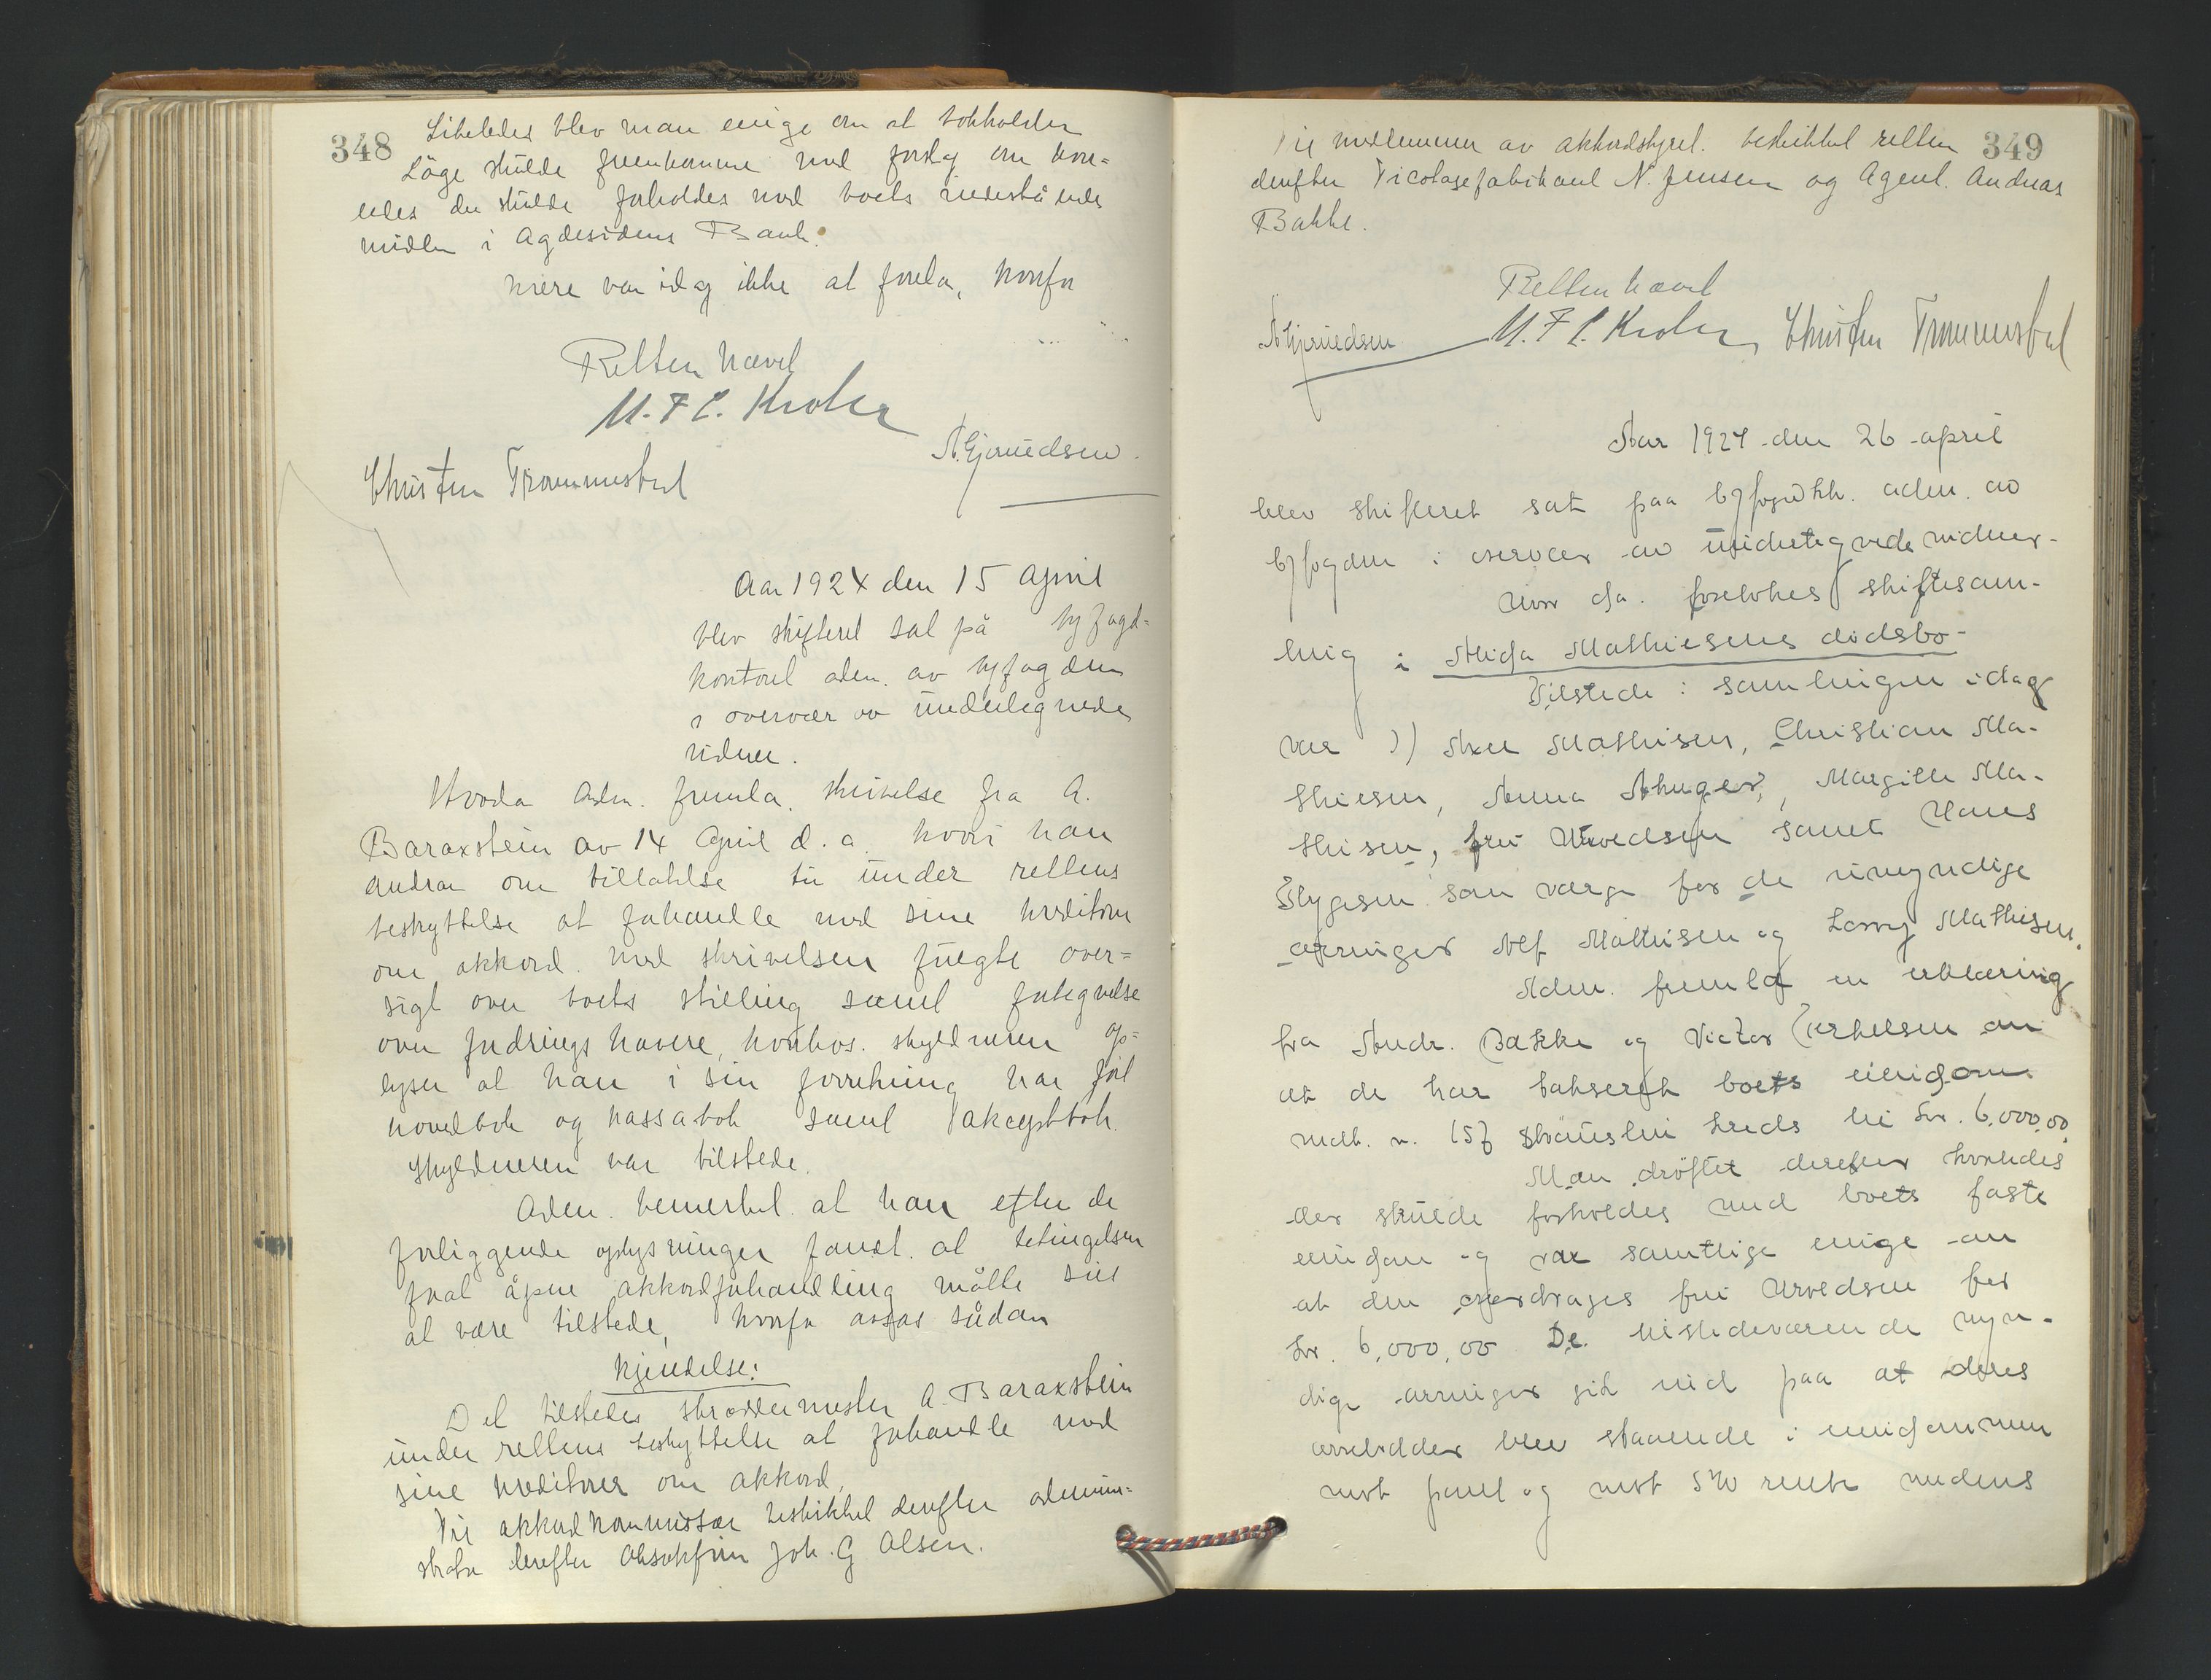 348
Likeledes blev man enige om at bokholder
Låge skulde fremkomme med forslag om hvor-
ledes der skulde forholdes med boets indestående
midler i Agdesidens Bank.
Mere var idag ikke at foreta, hvorfor
Retten hævet
M.F.C. Krober
Christen Trommestad
A. Gjeruldsen.
Aar 1924 den 15 April
blev skifteret sat på byfogd-
kontoret adm. av byfogden
i overvær av undertegnede
vidner.
Hvorda Adm. fremla. skrivelse fra A.
Baraxstein av 14 April d. a. hvori han
andrar om tillatelse til under rettens
beskyttelse at forhandle med sine kreditorer
om akkord. Med skrivelsen fulgte over-
sigt over boets stilling samt fortegnelse
over fordringshavere, hvorhos skyldneren op-
lyser at han i sin forretning har ført
hovedbok og kassabok samt akceptbok.
Skyldneren var tilstede.
Adm. bemerket at han efter de
forliggende oplysninger fandt at betingelsen
for at åpne akkordforhandling måtte sies
at være tilstede, hvorfor avsas sådan
Kjendelse:
Det tilstedes skræddermester A. Baraxstein
under rettens beskyttelse at forhandle med
sine kreditorer om akkord.
Til akkordkommissær beskikket derefter admini-
strator derefter Oksøkfører Joh. G Olsen.
349
Til medlemmer av akkordstyret. beskikket retten
derefter Tricotagefabrikant N. Jensen og Agent. Andreas
Bakke.
Retten hævet
A Gjeruldsen M.F.C. Krober, Christen Trommestad
Aar 1924 den 26 april
blev skifteret sat paa byfogdkt. adm. av
byfogden i overvær av undertegnede vidner.
Hvor da foretokes skiftesam-
ling i Alida Mathiesens dødsbo.
Tilstede i samlingen idag
var Mathisen, Christian Ma-
thiesen, Anna Margithe Ma-
thisen, fru Arvedsen samt Hans
Thygesen som værge for de umyndige
arvinger Alf Mathisen og Mathisen.
Adm. fremla en erklæring
fra Andr. Bakke og Victor Terkelsen om
at de har takseret boets eiendom
matr. n. 157 kreds til kr. 6.000,00
Man drøftet derefter hvorledes
der skulde forholdes med boets faste
eiendom og var samtlige enige om
at den overdrages fru Arvedsen for
kr. 6,000,00 De tilstedeværende myn-
dige arvinger gik ind paa at deres
arvelodder blev staaende i eiendommen
mot pant og mot 5% rente medens